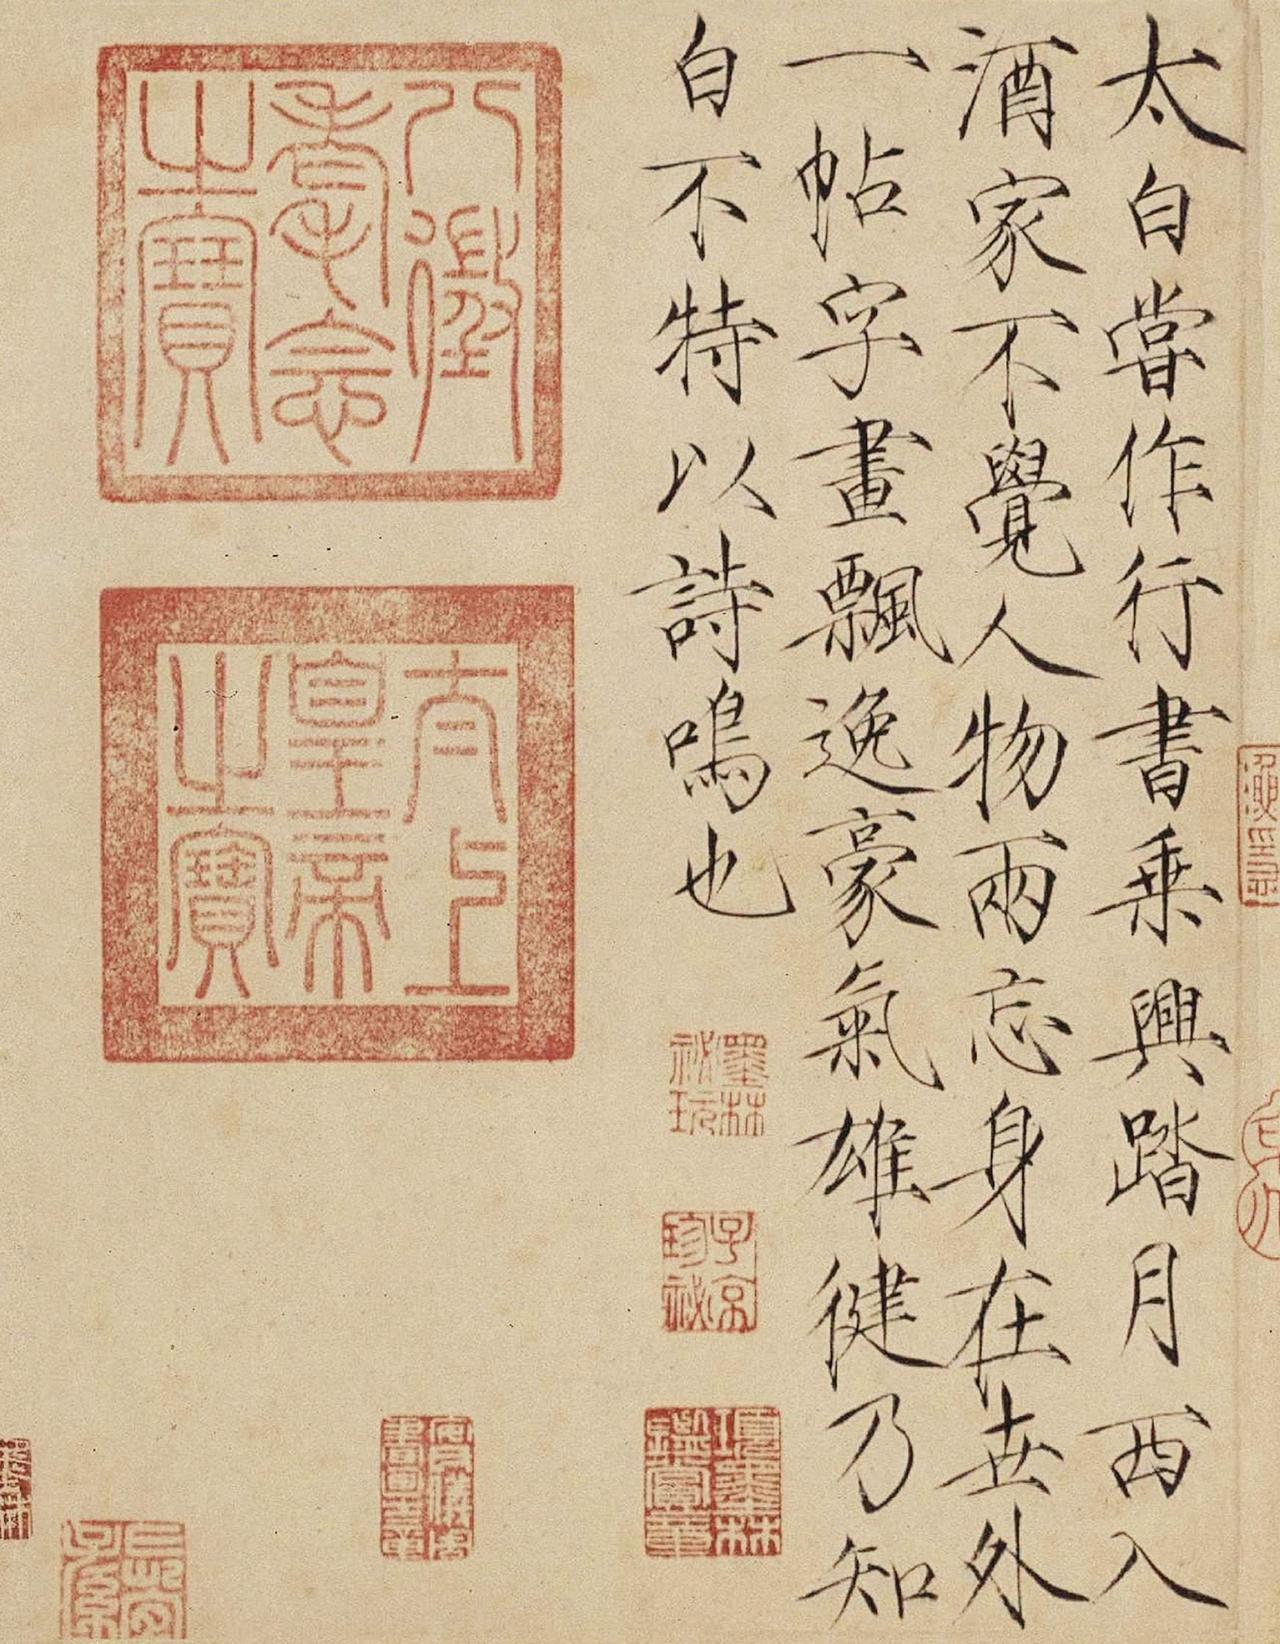 太白嘗作行書乗興踏月西入
酒家不覺人物兩忘身在世外
一帖字畫飄逸豪氣雄健乃知
白不特以詩鳴也
八徵耄念之寶
太上皇帝之寶
墨林祕玩
子京珍祕
項墨林鑑賞章
安儀周家珍